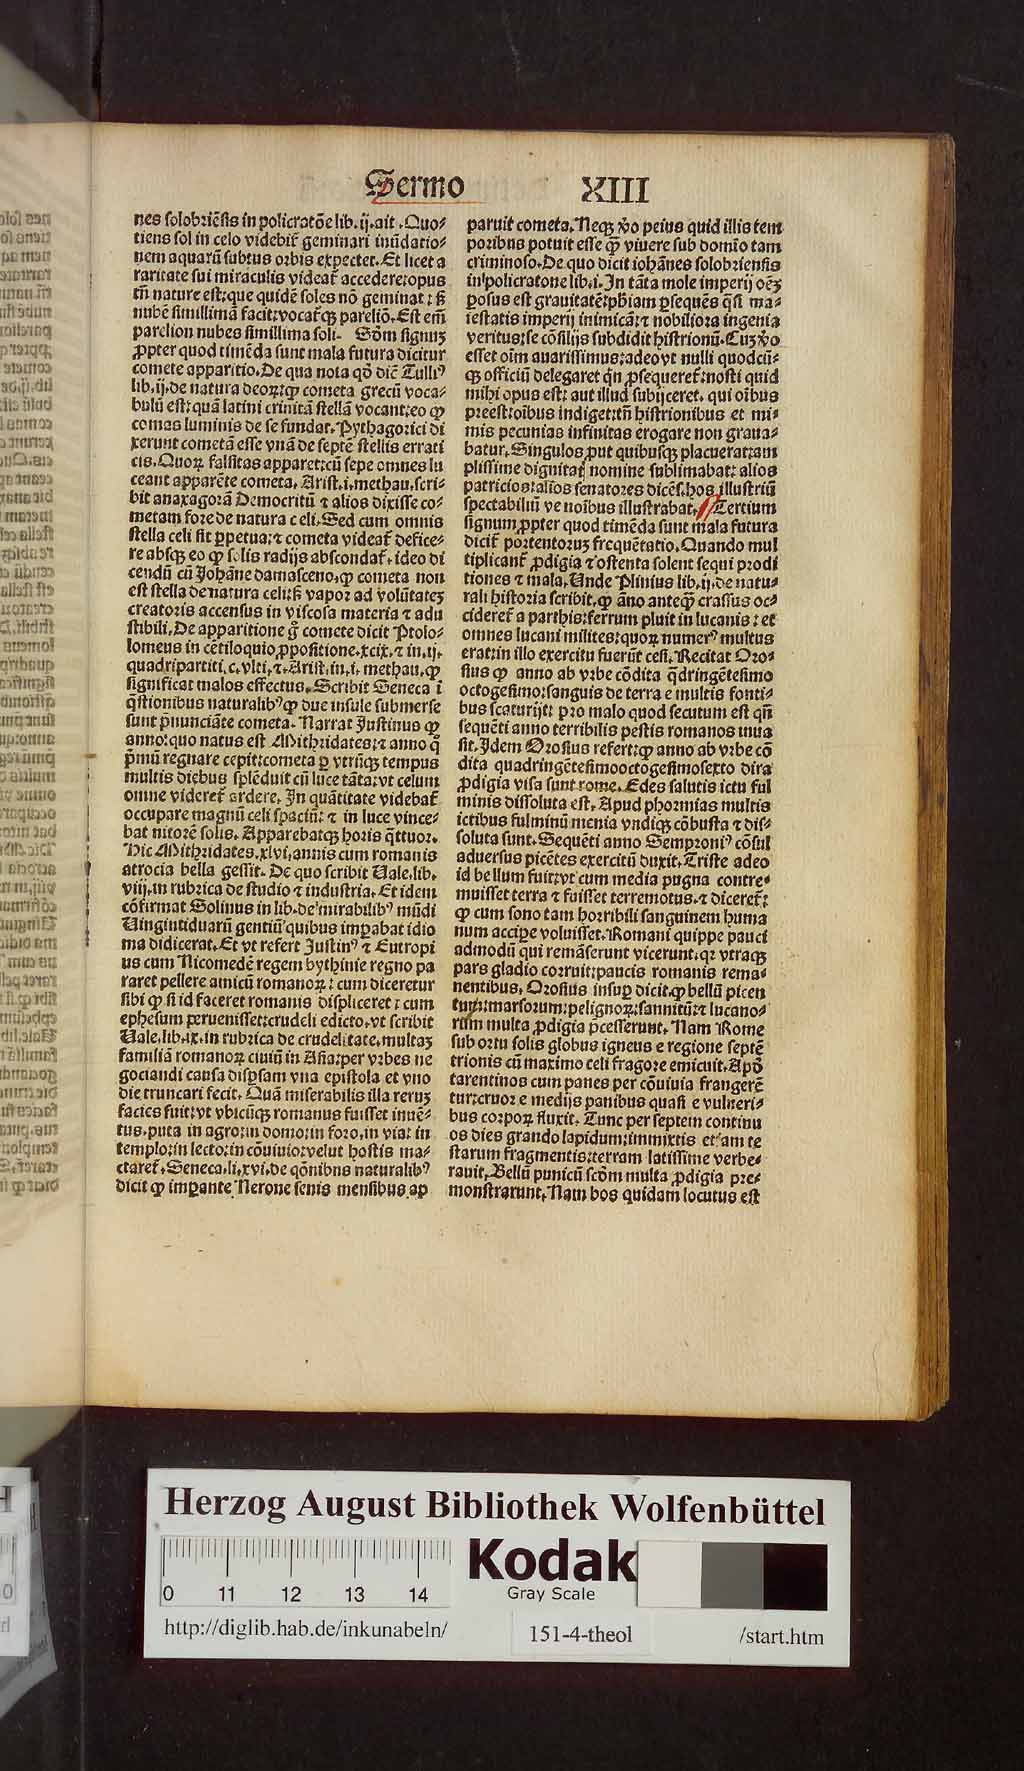 Sermo XIII
nes solobriēsis in policratōe lib. ij. ait. Quo-
tiens sol in celo videbit̃ geminari inūdatio-
nem aquarū subtus orbis expectet. Et licet a
raritate sui miraculis videat̃ accedere: opus
tñ nature est: que quidē soles nō geminat: sꝫ
nubē simillimā facit: vocat̃qꝫ pareliō. Est em̄
parelion nubes simillima soli. Scd̓m signuꝫ
ꝓpter quod timēda sunt mala futura dicitur
comete apparitio. De qua nota qd̓ dic̄ Tulliꝰ
lib. ij. de natura deoꝝ: ꝙ cometa grecū voca-
bulū est: quā latini crinitā stellā vocant: eo ꝙ
comas luminis de se fundat. Pythagorici di
xerunt cometā esse vnā de septē stellis errati
cis. Quoꝝ falsitas apparet: cū sepe omnes lu
ceant apparēte cometa. Arist. i. methau. scri-
bit anaxagorā Democritū ⁊ alios dixisse co-
metam fore de natura celi. Sed cum omnis
stella celi sit ꝑpetua: ⁊ cometa videat̃ defice-
re absqꝫ eo ꝙ solis radijs abscondat̃. ideo di
cendū cū Johāne damasceno. ꝙ cometa non
est stella de natura celi: sꝫ vapor ad volūtateꝫ
creatoris accensus in viscosa materia ⁊ adu
stibili. De apparitione gͦ comete dicit Ptolo-
lomeus in cētiloquio. ꝓpositione. xcix. ⁊ in. ij.
quadripartiti. c. vlti. ⁊. Arist. in. i. methau. ꝙ
significat malos effectus. Scribit Seneca ī
q̄stionibus naturalibꝰ ꝙ due insule submerse
sunt p̄nunciāte cometa. Narrat Justinus ꝙ
anno: quo natus est Mithridates: ⁊ anno q̊
pͥmū regnare cepit: cometa ꝑ vtrūqꝫ tempus
multis diebus splēduit cū luce tāta: vt celum
omne videret̃ ardere. In quātitate videbat̃
occupare magnū celi spaciū: ⁊ in luce vince-
bat nitorē solis. Apparebatqꝫ horis q̄ttuor.
Hic Mithridates. xlvi. annis cum romanis
atrocia bella gessit. De quo scribit Uale. lib.
viij. in rubrica de studio ⁊ industria. Et idem
cōfirmat Solinus in lib. de mirabilibꝰ mūdi
Uigintiduarū gentiū quibus imꝑabat idio
ma didicerat. Et vt refert Justinꝰ ⁊ Eutropi
us cum Nicomedē regem bythinie regno pa
raret pellere amicū romanoꝝ: cum diceretur
sibi ꝙ si id faceret romanis displiceret: cum
ephesum peruenisset: crudeli edicto. vt scribit
Uale. lib. ix. in rubrica de crudelitate. multaꝫ
familiā romanoꝝ ciuiū in Asia: per vrbes ne
gociandi causa disꝑsam vna epistola et vno
die truncari fecit. Quā miserabilis illa reruꝫ
facies fuit: vt vbicūqꝫ romanus fuisset inuē-
tus. puta in agro: in domo: in foro. in via: in
templo: in lecto: in cōuiuio: velut hostis ma-
ctaret̃. Seneca. li. xvi. de qōnibus naturalibꝰ
dicit ꝙ imꝑante Nerone senis mensibus ap
paruit cometa. Neqꝫ v̓o peius quid illis tem
poribus potuit esse ꝙ̄ viuere sub domīo tam
criminoso. De quo dicit iohānes solobriensis
in policratone lib. i. In tāta mole imperij oēꝫ
ꝑosus est grauitatē: ph̄iam ꝑsequēs q̄si ma-
iestatis imperij inimicā: ⁊ nobiliora ingenia
veritus: se cōsilijs subdidit histrionū. Cuꝫ v̓o
esset oīm auarissimus: adeo vt nulli quodcū-
qꝫ officiū delegaret qn̄ ꝓsequeret̃: nosti quid
mihi opus est: aut illud subijceret. qui oībus
preest: oībus indiget: tñ histrionibus et mi-
mis pecunias infinitas erogare non graua-
batur. Singulos ꝓut quibusqꝫ placuerat: am
plissime dignitat̃ nomine sublimabat: alios
patricios: alios senatores dicēs. hos illustriū
spectabiliū ve noībus illustrabat. Tertium
signum ꝓpter quod timēda sunt mala futura
dicit̃ portentoruꝫ frequētatio. Quando mul
tiplicant̃ ꝓdigia ⁊ ostenta solent sequi prodi
tiones ⁊ mala. Unde Plinius lib. ij. de natu-
rali historia scribit. ꝙ āno anteqꝫ̄ crassus oc-
cideret̃ a parthis: ferrum pluit in lucanis: et
omnes lucani milites: quoꝝ numerꝰ multus
erat: in illo exercitu fuerūt cesi. Recitat Oro-
sius ꝙ anno ab vrbe cōdita q̄dringētesimo
octogesimo: sanguis de terra e multis fonti-
bus scaturijt: pro malo quod secutum est qñ
sequēti anno terribilis pestis romanos inua
sit. Idem Orosius refert: ꝙ anno ab vrbe cō
dita quadringētesimooctogesimosexto dira
ꝓdigia visa sunt rome. Edes salutis ictu ful
minis dissoluta est. Apud phormias multis
ictibus fulminū menia vndiqꝫ cōbusta ⁊ dis-
soluta sunt. Sequēti anno Semproniꝰ cōsul
aduersus picētes exercitū duxit. Triste adeo
id bellum fuit: vt cum media pugna contre-
muisset terra ⁊ fuisset terremotus. ⁊ diceret̃:
ꝙ cum sono tam horribili sanguinem huma
num accipe voluisset. Romani quippe pauci
admodū qui remāserunt vicerunt. qꝛ vtraqꝫ
pars gladio corruit: paucis romanis rema-
nentibus. Orosius insuꝑ dicit. ꝙ bellū picen
tum: marsorum: pelignoꝝ: sannitū: ⁊ lucano-
rum multa ꝓdigia p̄cesserunt. Nam Rome
sub ortu solis globus igneus e regione septē
trionis cū maximo celi fragore emicuit. Apd̓
tarentinos cum panes per cōuiuia frangerē
tur: cruor e medijs panibus quasi e vulneri-
bus corpoꝝ fluxit. Tunc per septem continu
os dies grando lapidum: immixtis etiam te
starum fragmentis: terram latissime verbe-
rauit. Bellū punicū scd̓m multa ꝓdigia pre-
monstrarunt. Nam bos quidam locutus est
Herzog August Bibliothek Wolfenbüttel
0 11 12 13 14
Kodak
Gray Scale
http://diglib.hab.de/inkunabeln/ 151-4-theol /start.htm